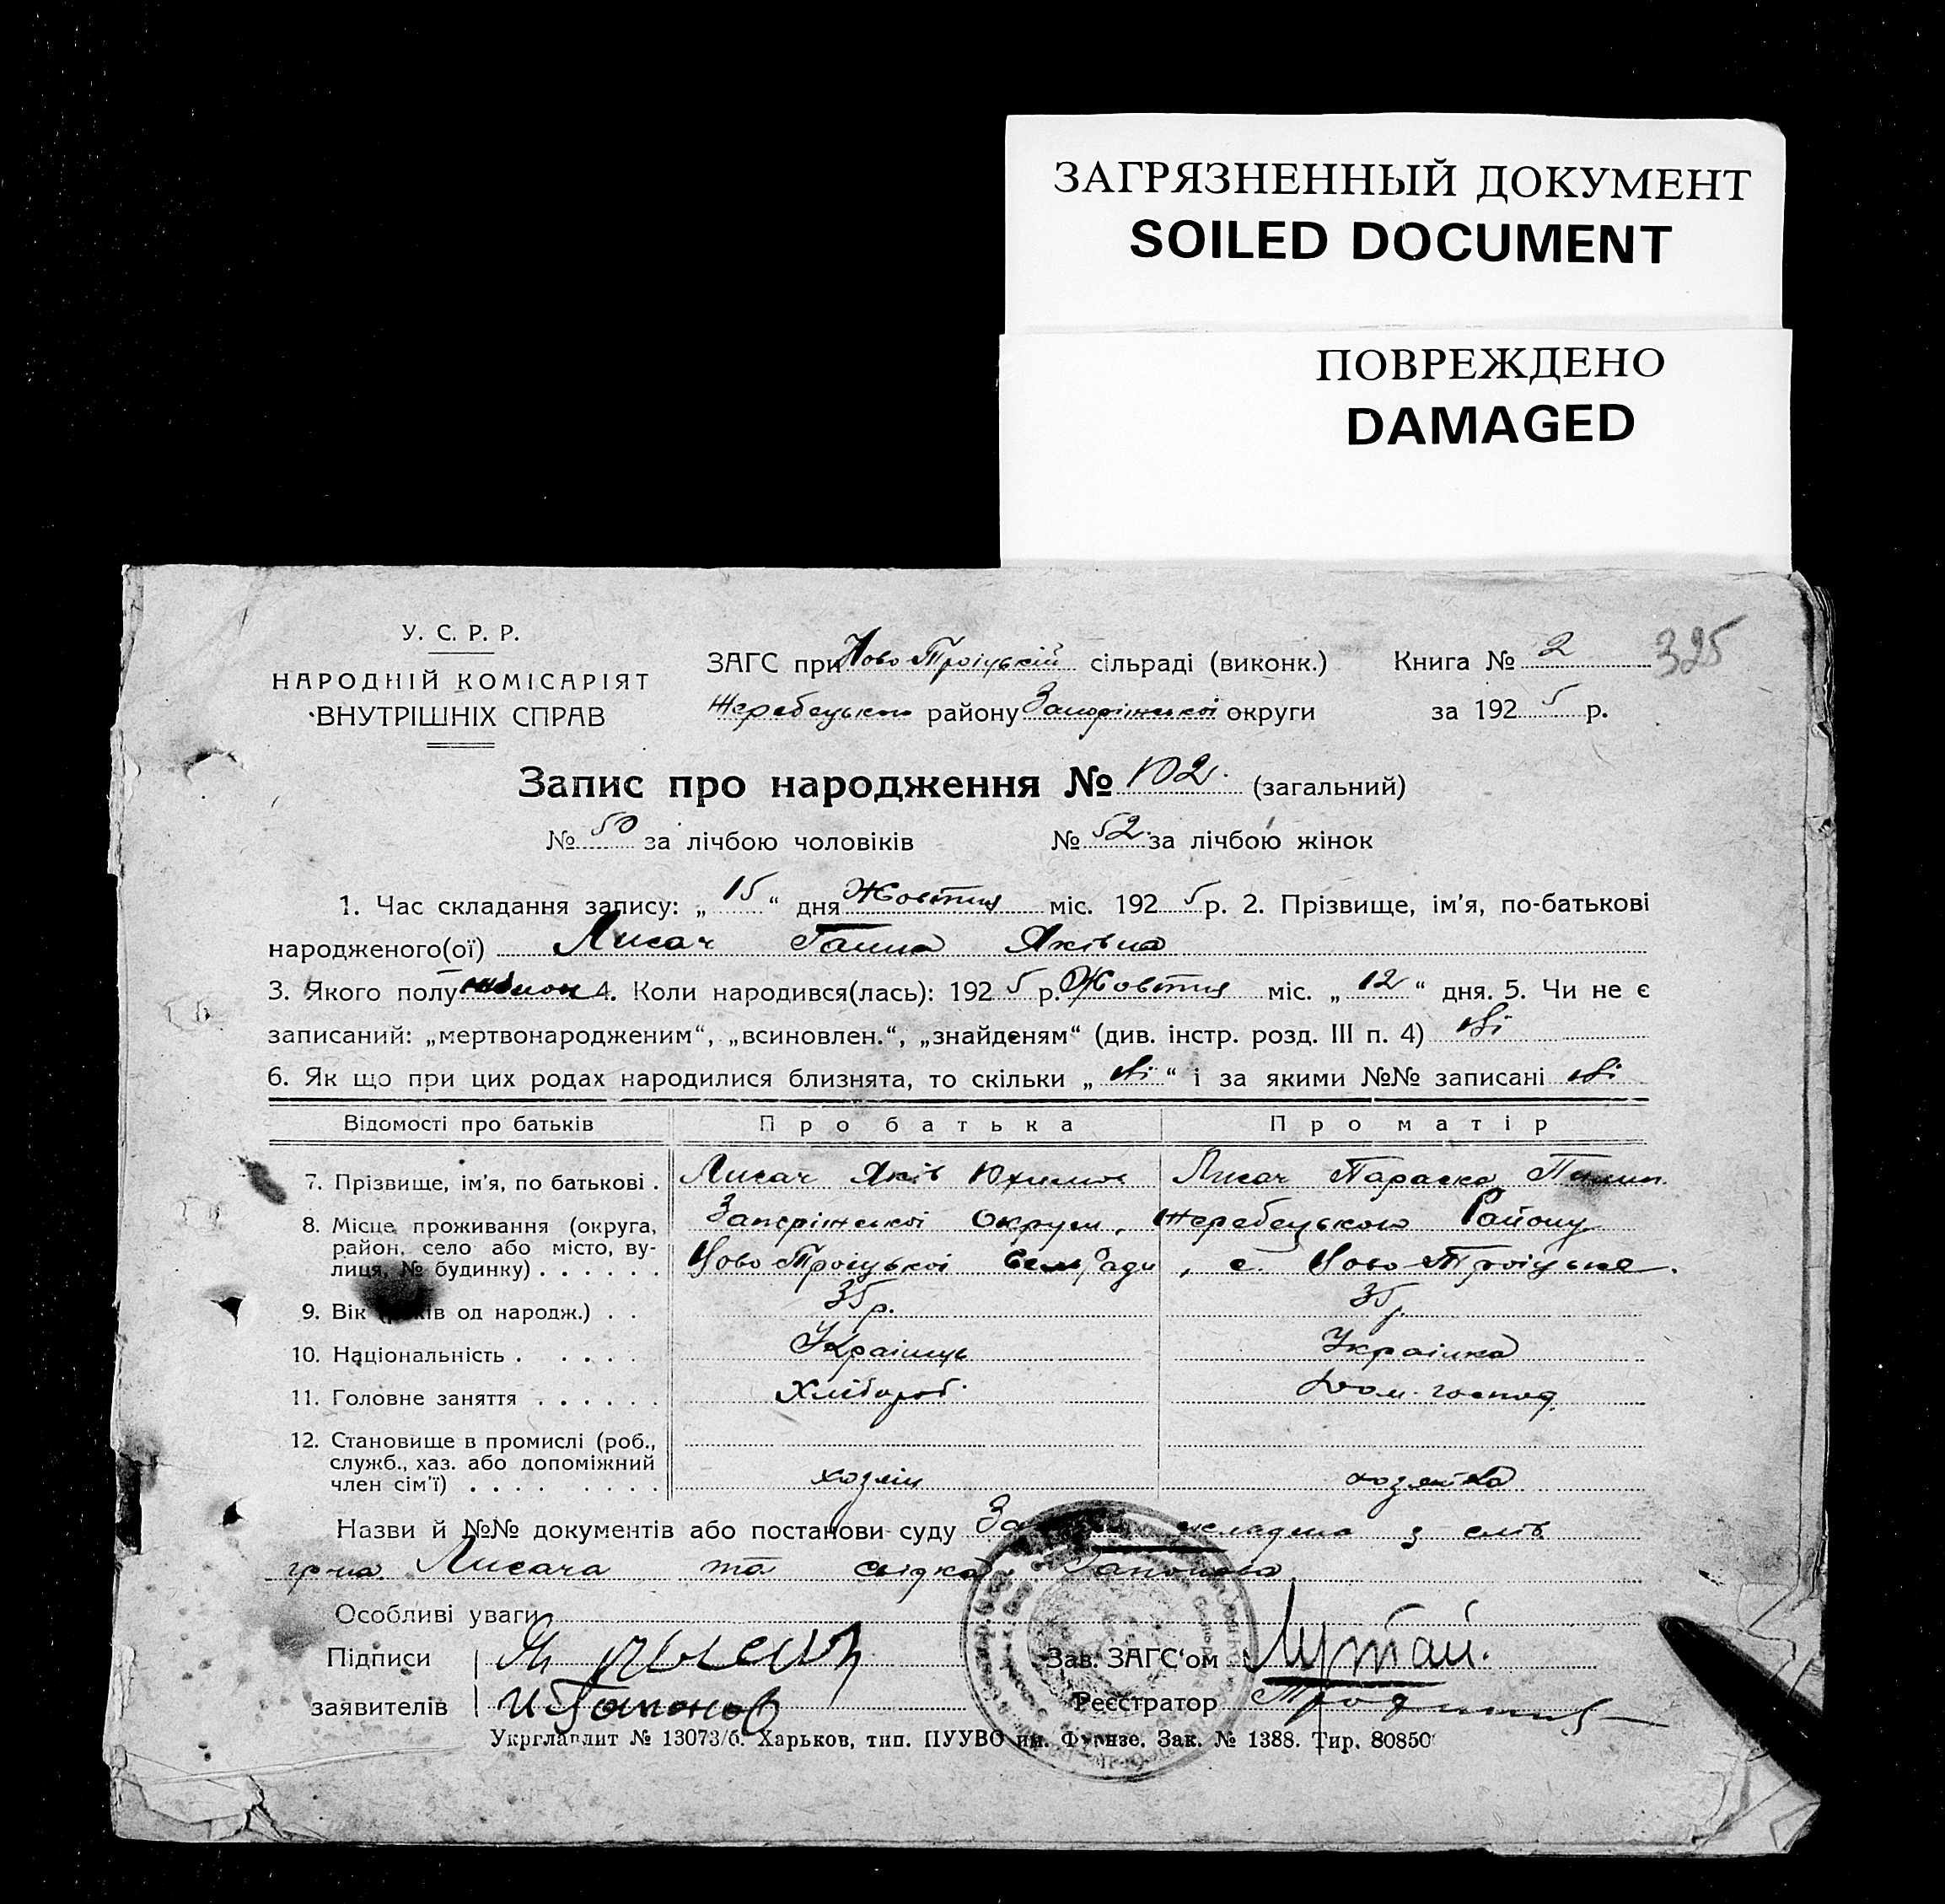 ЗАГРЯЗНЕННЫЙ ДОКУМЕНТ
SOILED DOCUMENT
ПОВРЕЖДЕНО
DAMAGED
У. С. Р. Р.
НАРОДНІЙ КОМІСАРІЯТ
ВНУТРІШНІХ СПРАВ
ЗАГС при Ново Троіцькій сільраді (виконк.) Книга № 2 325
Жеребецького району Запоріжськоі округи за 1925 р.
Запис про народження № 102. (загальний)
№ 50 за лічбою чоловіків № 52 за лічбою жінок
1. Час складання запису: „15“ дня Жовтня міс. 1925 р. 2. Прізвище, ім'я, по-батькові
народженого(ої) Лисач Ганна Яківна
3. Якого полу 4. Коли народився(лась): 1925 р. Жовтня міс. „12“ дня. 5. Чи не є
записаний: „мертвонародженим“, „всиновлен.“, „знайденям“ (див. інстр. розд. III п. 4) Ні
6. Як що при цих родах народилися близнята, то скільки „Ні“ і за якими №№ записані Ні
Відомості про батьків Про батька Про матір
7. Прізвище, ім'я, по батькові . Лисач Яків Юхимов Лисач Параска
8. Місце проживання (округа, район, село або місто, вулиця, № будинку) . . . . . .
Запоріжськоі Округи, Жеребецького Району
Ново Троіцькоі , с. Ново-Троіцьке.
9. Вік (років од народж.) . . 35 р. 35 р.
10. Національність . . . . . Українець Українка
11. Головне заняття . . . . . . Хлібороб. Дом. господ.
12. Становище в промислі (роб., служб., хаз. або допоміжний член сім'ї) . . . . . . . . хозяін хозяйка
Назви й №№ документів або постанови суду складено з слів
гр-на Лисача та свідка Гапонова
Особливі уваги
Підписи
заявителів И Гапонов
Зав. ЗАГС'ом Лутай.
Реєстратор
Укрглавлит № 13073/б. Харьков, тип. ПУУВО им. Фрунзе. Зак. № 1388. Тир. 80850